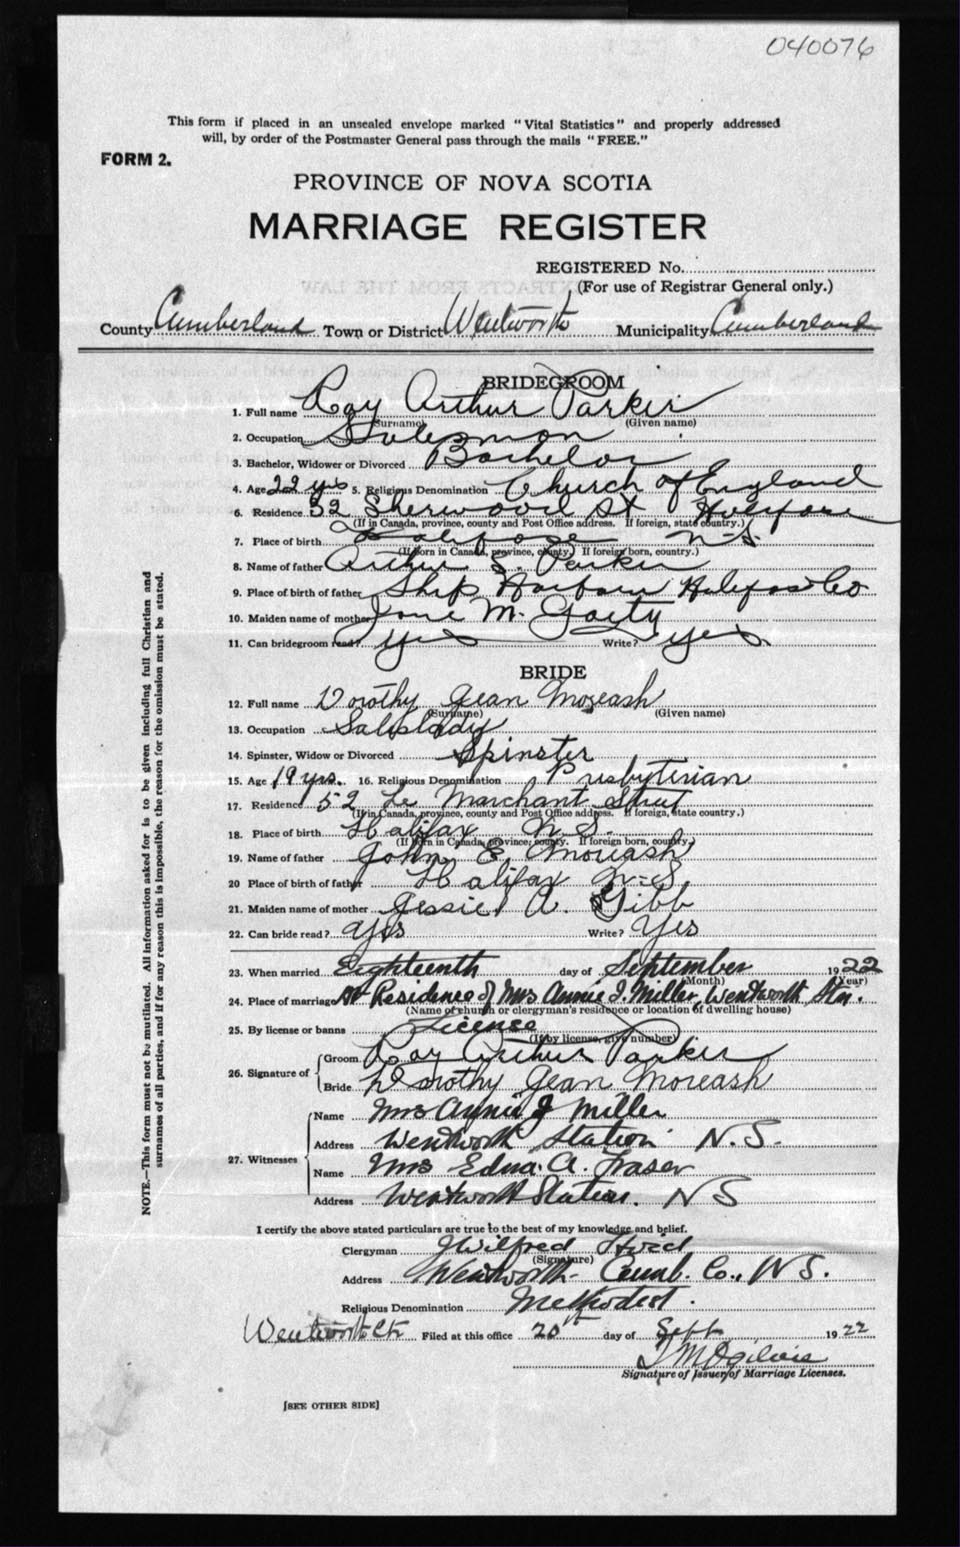 040076
This form if placed in an unsealed envelope marked "Vital Statistics" and properly addressed
will, by order of the Postmaster General pass through the mails "FREE."
FORM 2.
PROVINCE OF NOVA SCOTIA
MARRIAGE REGISTER
REGISTERED No.
(For use of Registrar General only.)
County Cumberland Town or District Wentworth Municipality Cumberland
BRIDEGROOM
1. Full name Roy Arthur Parker
(Surname) (Given name)
2. Occupation Salesman
3. Bachelor, Widower or Divorced Bachelor
4. Age 22 yrs 5. Religious Denomination Church of England
6. Residence 52 Sherwood St Halifax
(If in Canada, province, county and Post Office address. If foreign, state country.)
7. Place of birth Halifax N-S.
(If born in Canada, province, county.) If foreign born, country.)
8. Name of father Arthur S. Parker
9. Place of birth of father Ship Harbour Halifax Co
10. Maiden name of mother Jane M. Gaety
11. Can bridegroom read? yes Write? yes.
BRIDE
12. Full name Dorothy Jean Moreash
(Surname) (Given name)
13. Occupation Saleslady
14. Spinster, Widow or Divorced Spinster
15. Age 19 yrs. 16. Religious Denomination Presbyterian
17. Residence 52 Le Marchant Street
(If in Canada, province, county and Post Office address. If foreign, state country.)
18. Place of birth Halifax N.S.
(If born in Canada, province; county. If foreign born, country.)
19. Name of father John E. Moreash
20 Place of birth of father Halifax N-S
21. Maiden name of mother Jessie A. Gibb
22. Can bride read? Yes Write? Yes
23. When married Eighteenth day of September 1922
(Month) (Year)
24. Place of marriage At Residence of Mrs Annie J. Miller, Wentworth Stn.
(Name of church or clergyman's residence or location of dwelling house)
25. By license or banns License
(If by license, give number)
26. Signature of Groom Roy Arthur Parker
Bride Dorothy Jean Moreash
27. Witnesses Name Mrs Annie J Miller
Address Wentworth Station N.S.
Name Mrs Edna. A. Fraser
Address Wentworth Station. NS
I certify the above stated particulars are true to the best of my knowledge and belief.
Clergyman J Wilfred
(Signature)
Address Wentworth- Cumb. Co., N S.
Religious Denomination Methodist.
Wentworth Filed at this office 20th day of Sept 1922
Ogilvie
Signature of Issuer of Marriage Licenses.
[SEE OTHER SIDE]
NOTE.—This form must not be mutilated. All information asked for is to be given including full Christian and
surnames of all parties, and if for any reason this is impossible, the reason for the omission must be stated.